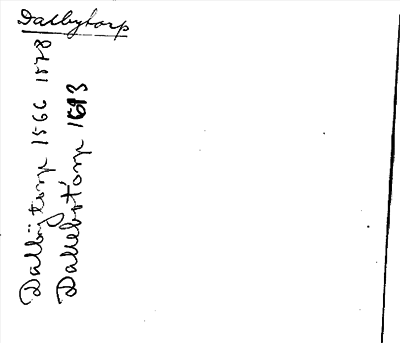 Dalbytorp
Dalbÿtorp 1566 1578
Dallebÿtorp 1613